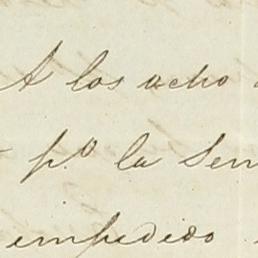 A los ocho
p.º la Sen
impedido